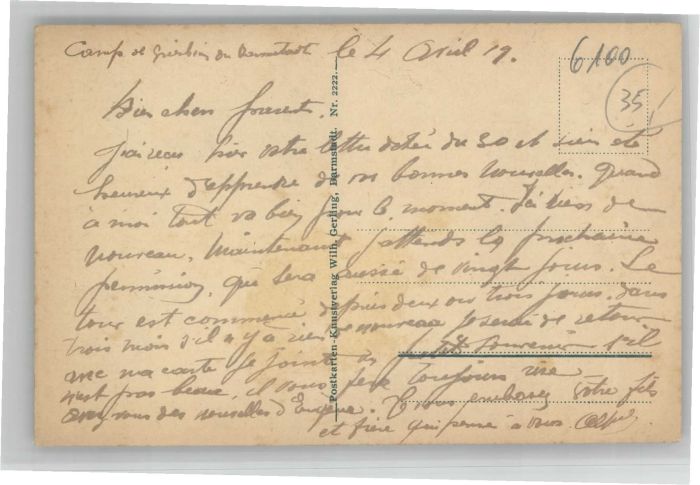 Camp de Griesheim du Darmstadt le 4 Avril 19.
6100
35
Bien chers parents.
J'ai reçu hier votre lettre datée du 30 et suis été
heureux d'apprendre de vos bonnes nouvelles. Quand
à moi tout va bien pour le moment. J'ai rien de
nouveau. Maintenant j'attends la prochaine
permission, que sera aussi de vingt jours. Le
tour est commencé depuis deux ou trois jours. dans
trois mois s'il n'y a rien de nouveau je serai de retour
ma carte je joint un petit souvenir s'il
n'est pas beau, il vous fera toujours rire
avez vous des nouvelles d'Eugène. Je vous embrasse votre fils
et frère qui pense à vous.
Postkarten-Kunstverlag Wilh. Gerling, Darmstadt. Nr. 2222.